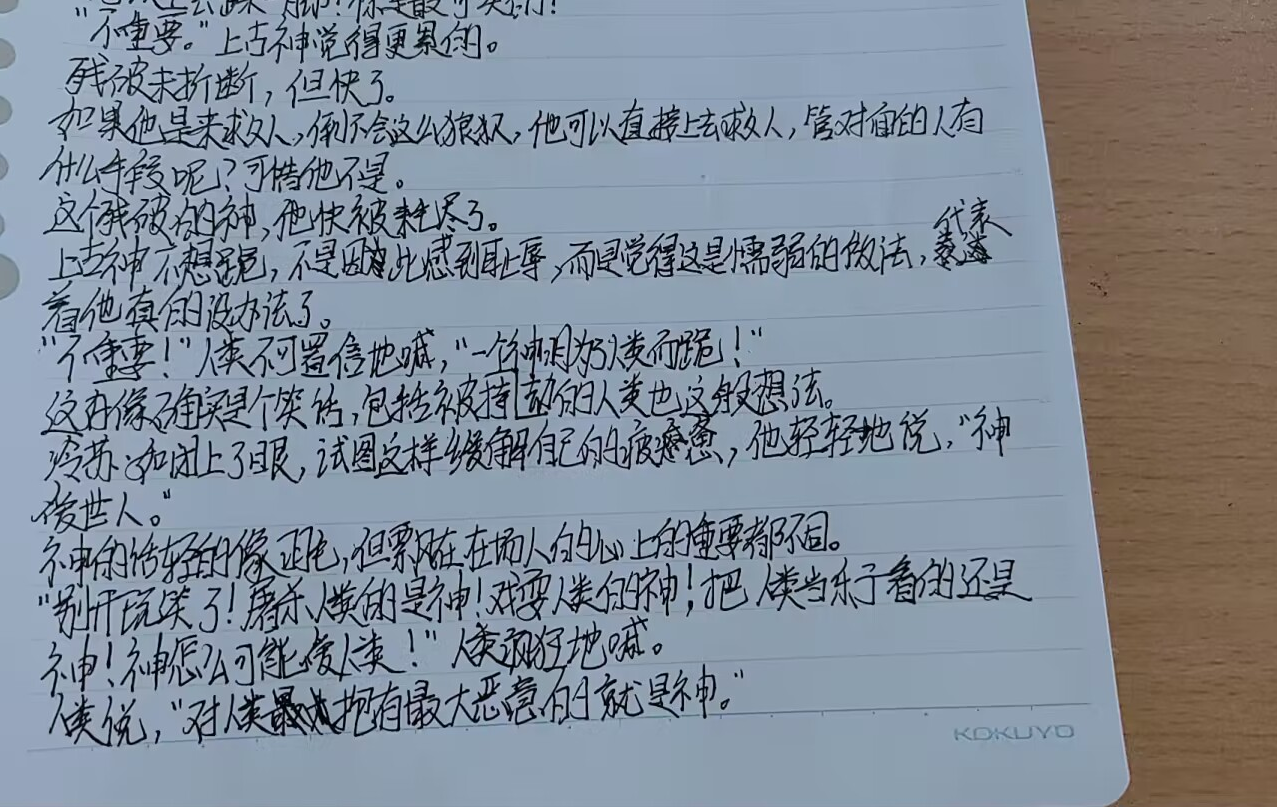 "不重要。"上古神觉得更累的。
残破未折断，但快了。
如果他是来救人，倒不会这么狼狈，他可以直接上去救人，管对面的人有
什么手段呢？可惜他不是。
这个残破的神，他快被耗尽了。
代表
上古神不想跪，不是因为此感到耻辱，而是觉得这是懦弱的做法，
着他真的没办法了。
"不重要！"人类不可置信地喊，"一个神明为人类而跪！"
这好像确实是个笑话，包括被持的人类也这般想法。
冷苏闭上了眼，试图这样缓解自己的疲惫，他轻轻地说，"神
爱世人。"
神的话轻的像羽毛，但飘在在场人的心上的重要都不同。
"别开玩笑了！屠杀人类的是神！戏耍人类的神！把人类当乐子看的还是
神！神怎么可能爱人类！"人类疯狂地喊。
人类说，"对人类抱有最大恶意的就是神。"
KOKUYO